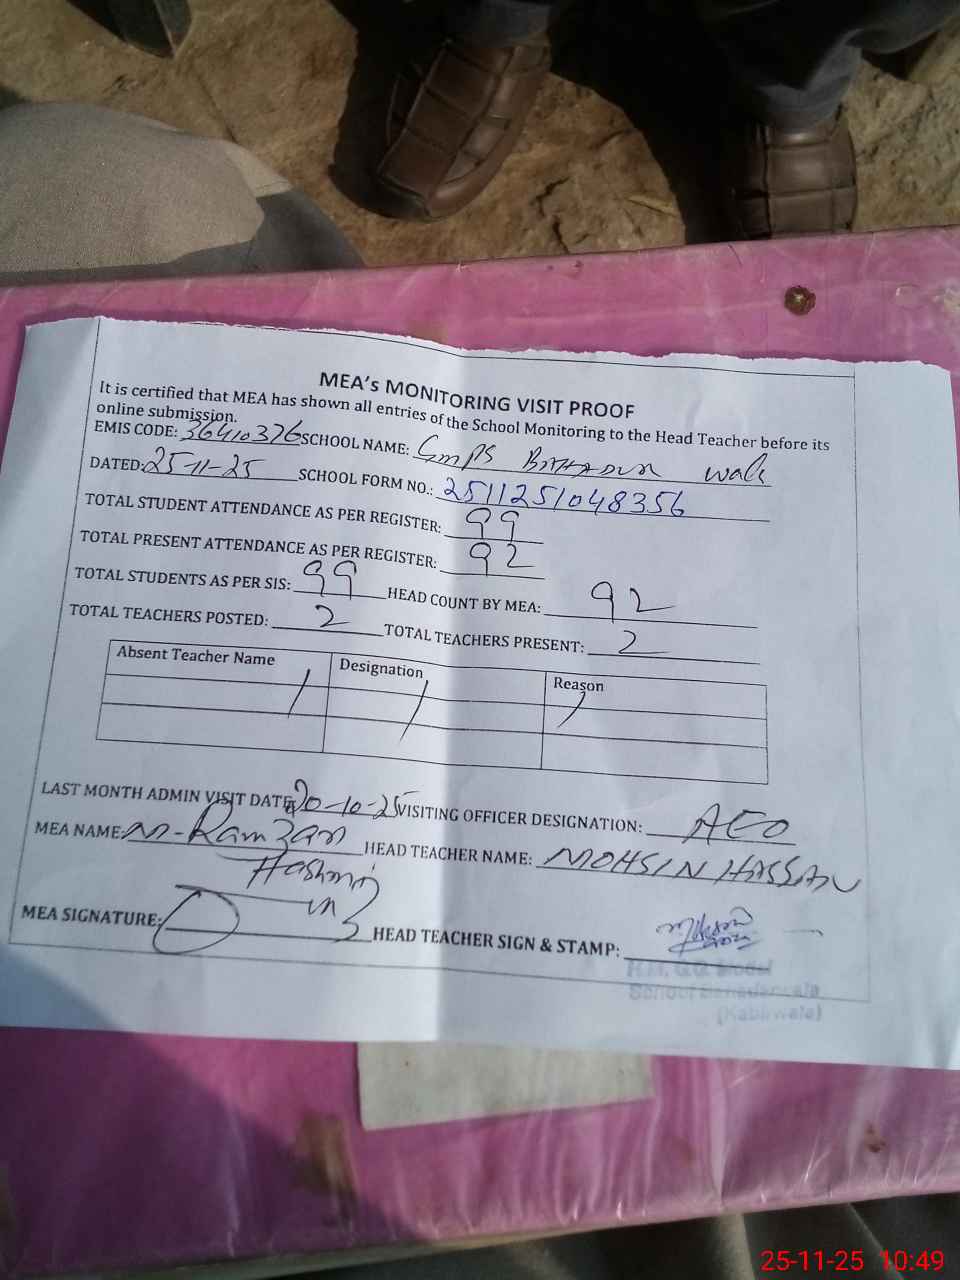 MEA's MONITORING VISIT PROOF
It is certified that MEA has shown all entries of the School Monitoring to the Head Teacher before its
online submission.
EMIS CODE: 36410376 SCHOOL NAME: GMPS BAHADUR wala
DATED: 25-11-25 SCHOOL FORM NO.: 2511251048356
TOTAL STUDENT ATTENDANCE AS PER REGISTER: 99
TOTAL PRESENT ATTENDANCE AS PER REGISTER: 92
TOTAL STUDENTS AS PER SIS: 99 HEAD COUNT BY MEA: 92
TOTAL TEACHERS POSTED: 2 TOTAL TEACHERS PRESENT: 2
Absent Teacher Name Designation Reason
LAST MONTH ADMIN VISIT DATE: 20-10-25 VISITING OFFICER DESIGNATION: AEO
MEA NAME: M-Ramzan HEAD TEACHER NAME: MOHSIN HASSAN
Hashmi
MEA SIGNATURE: HEAD TEACHER SIGN & STAMP:
H.M. Model
School
25-11-25 10:49